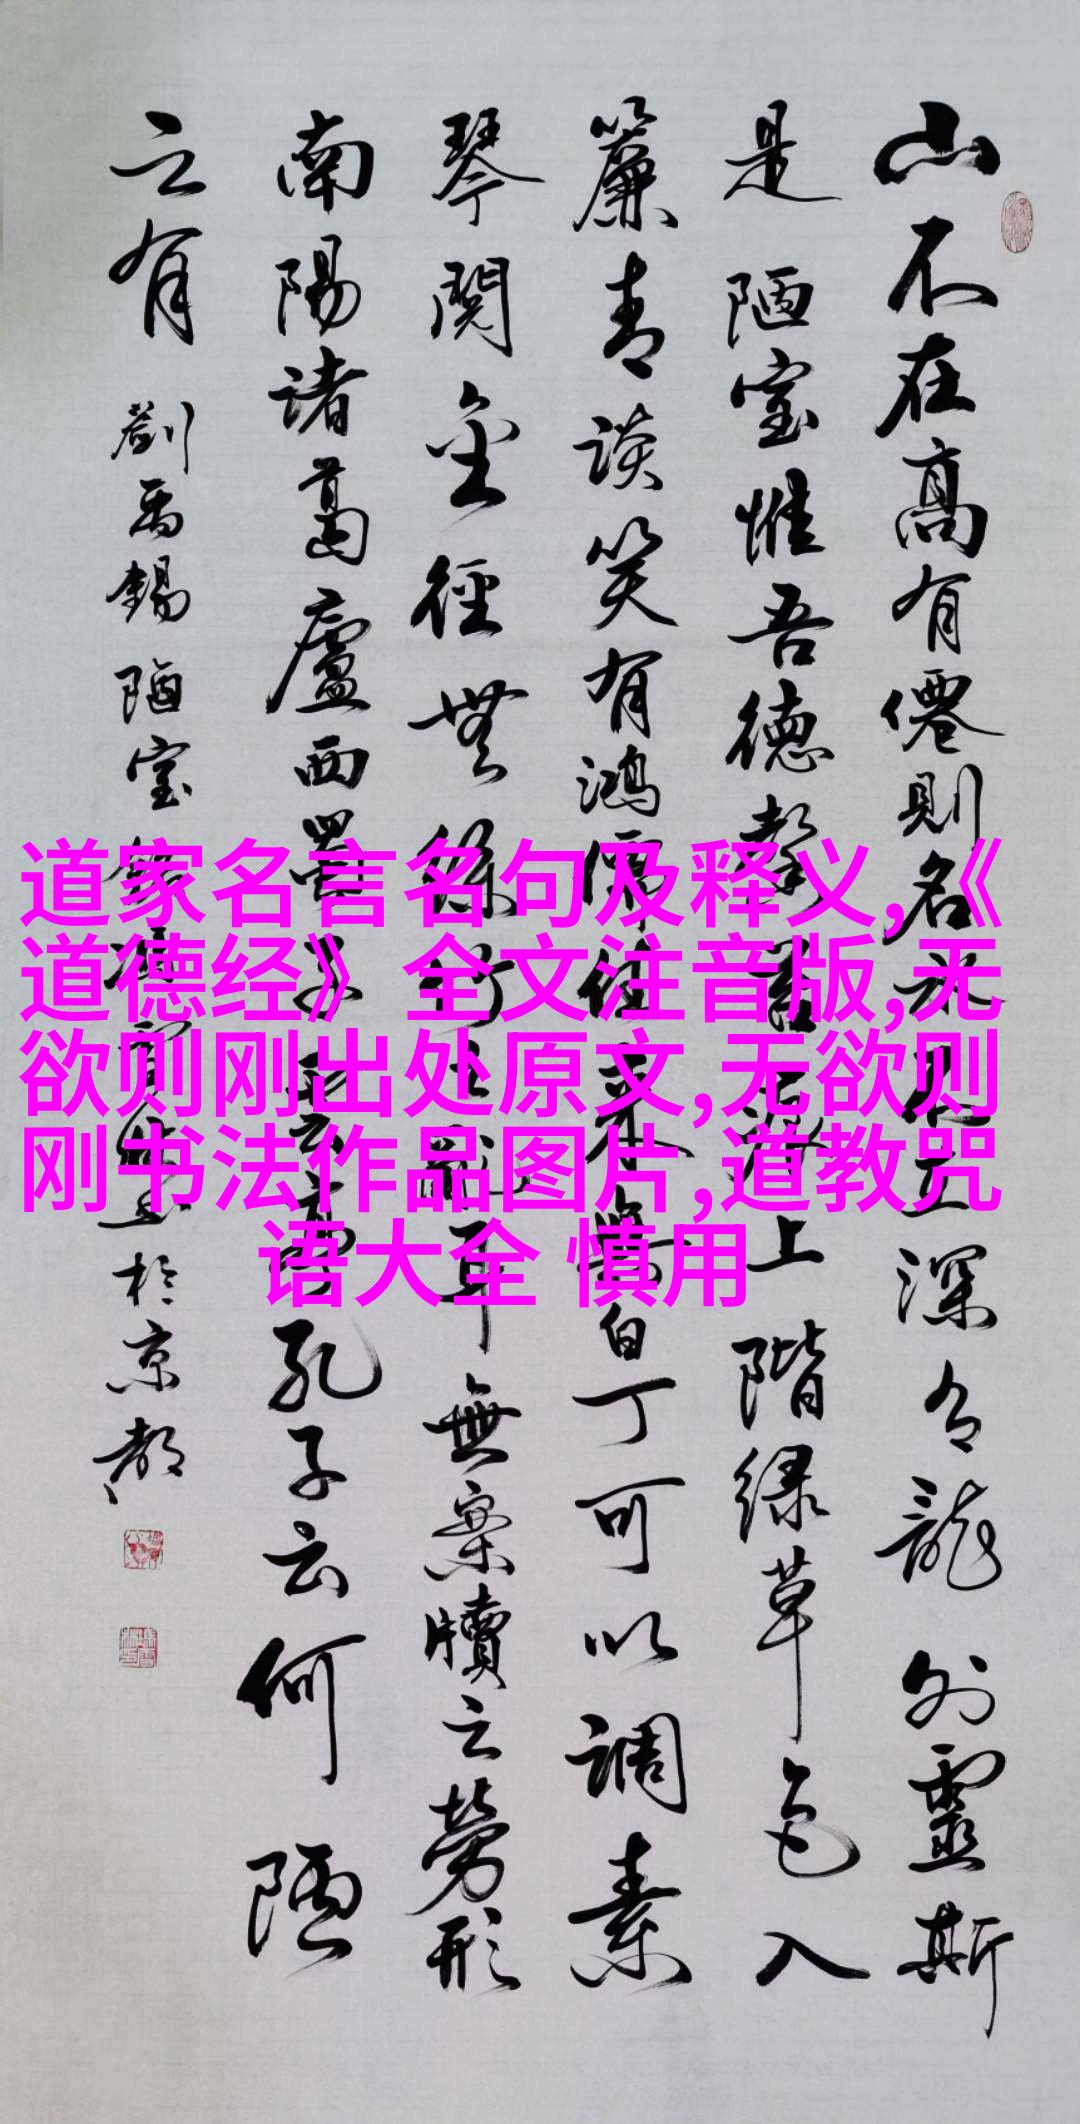 山不在高有僊則名水不在深有龍則靈斯
是陋室惟吾德馨苔痕上階緑草色入
簾青談笑有鴻儒往来無白丁可以調素
琴閱金經無絲竹之亂耳無案牘之勞形
南陽諸葛廬西蜀子雲亭孔子云何陋
之有 劉禹錫陋室銘 於京都
道家名言名句及释义,《
道德经》全文注音版,无
欲则刚出处原文,无欲则
刚书法作品图片,道教咒
语大全 慎用